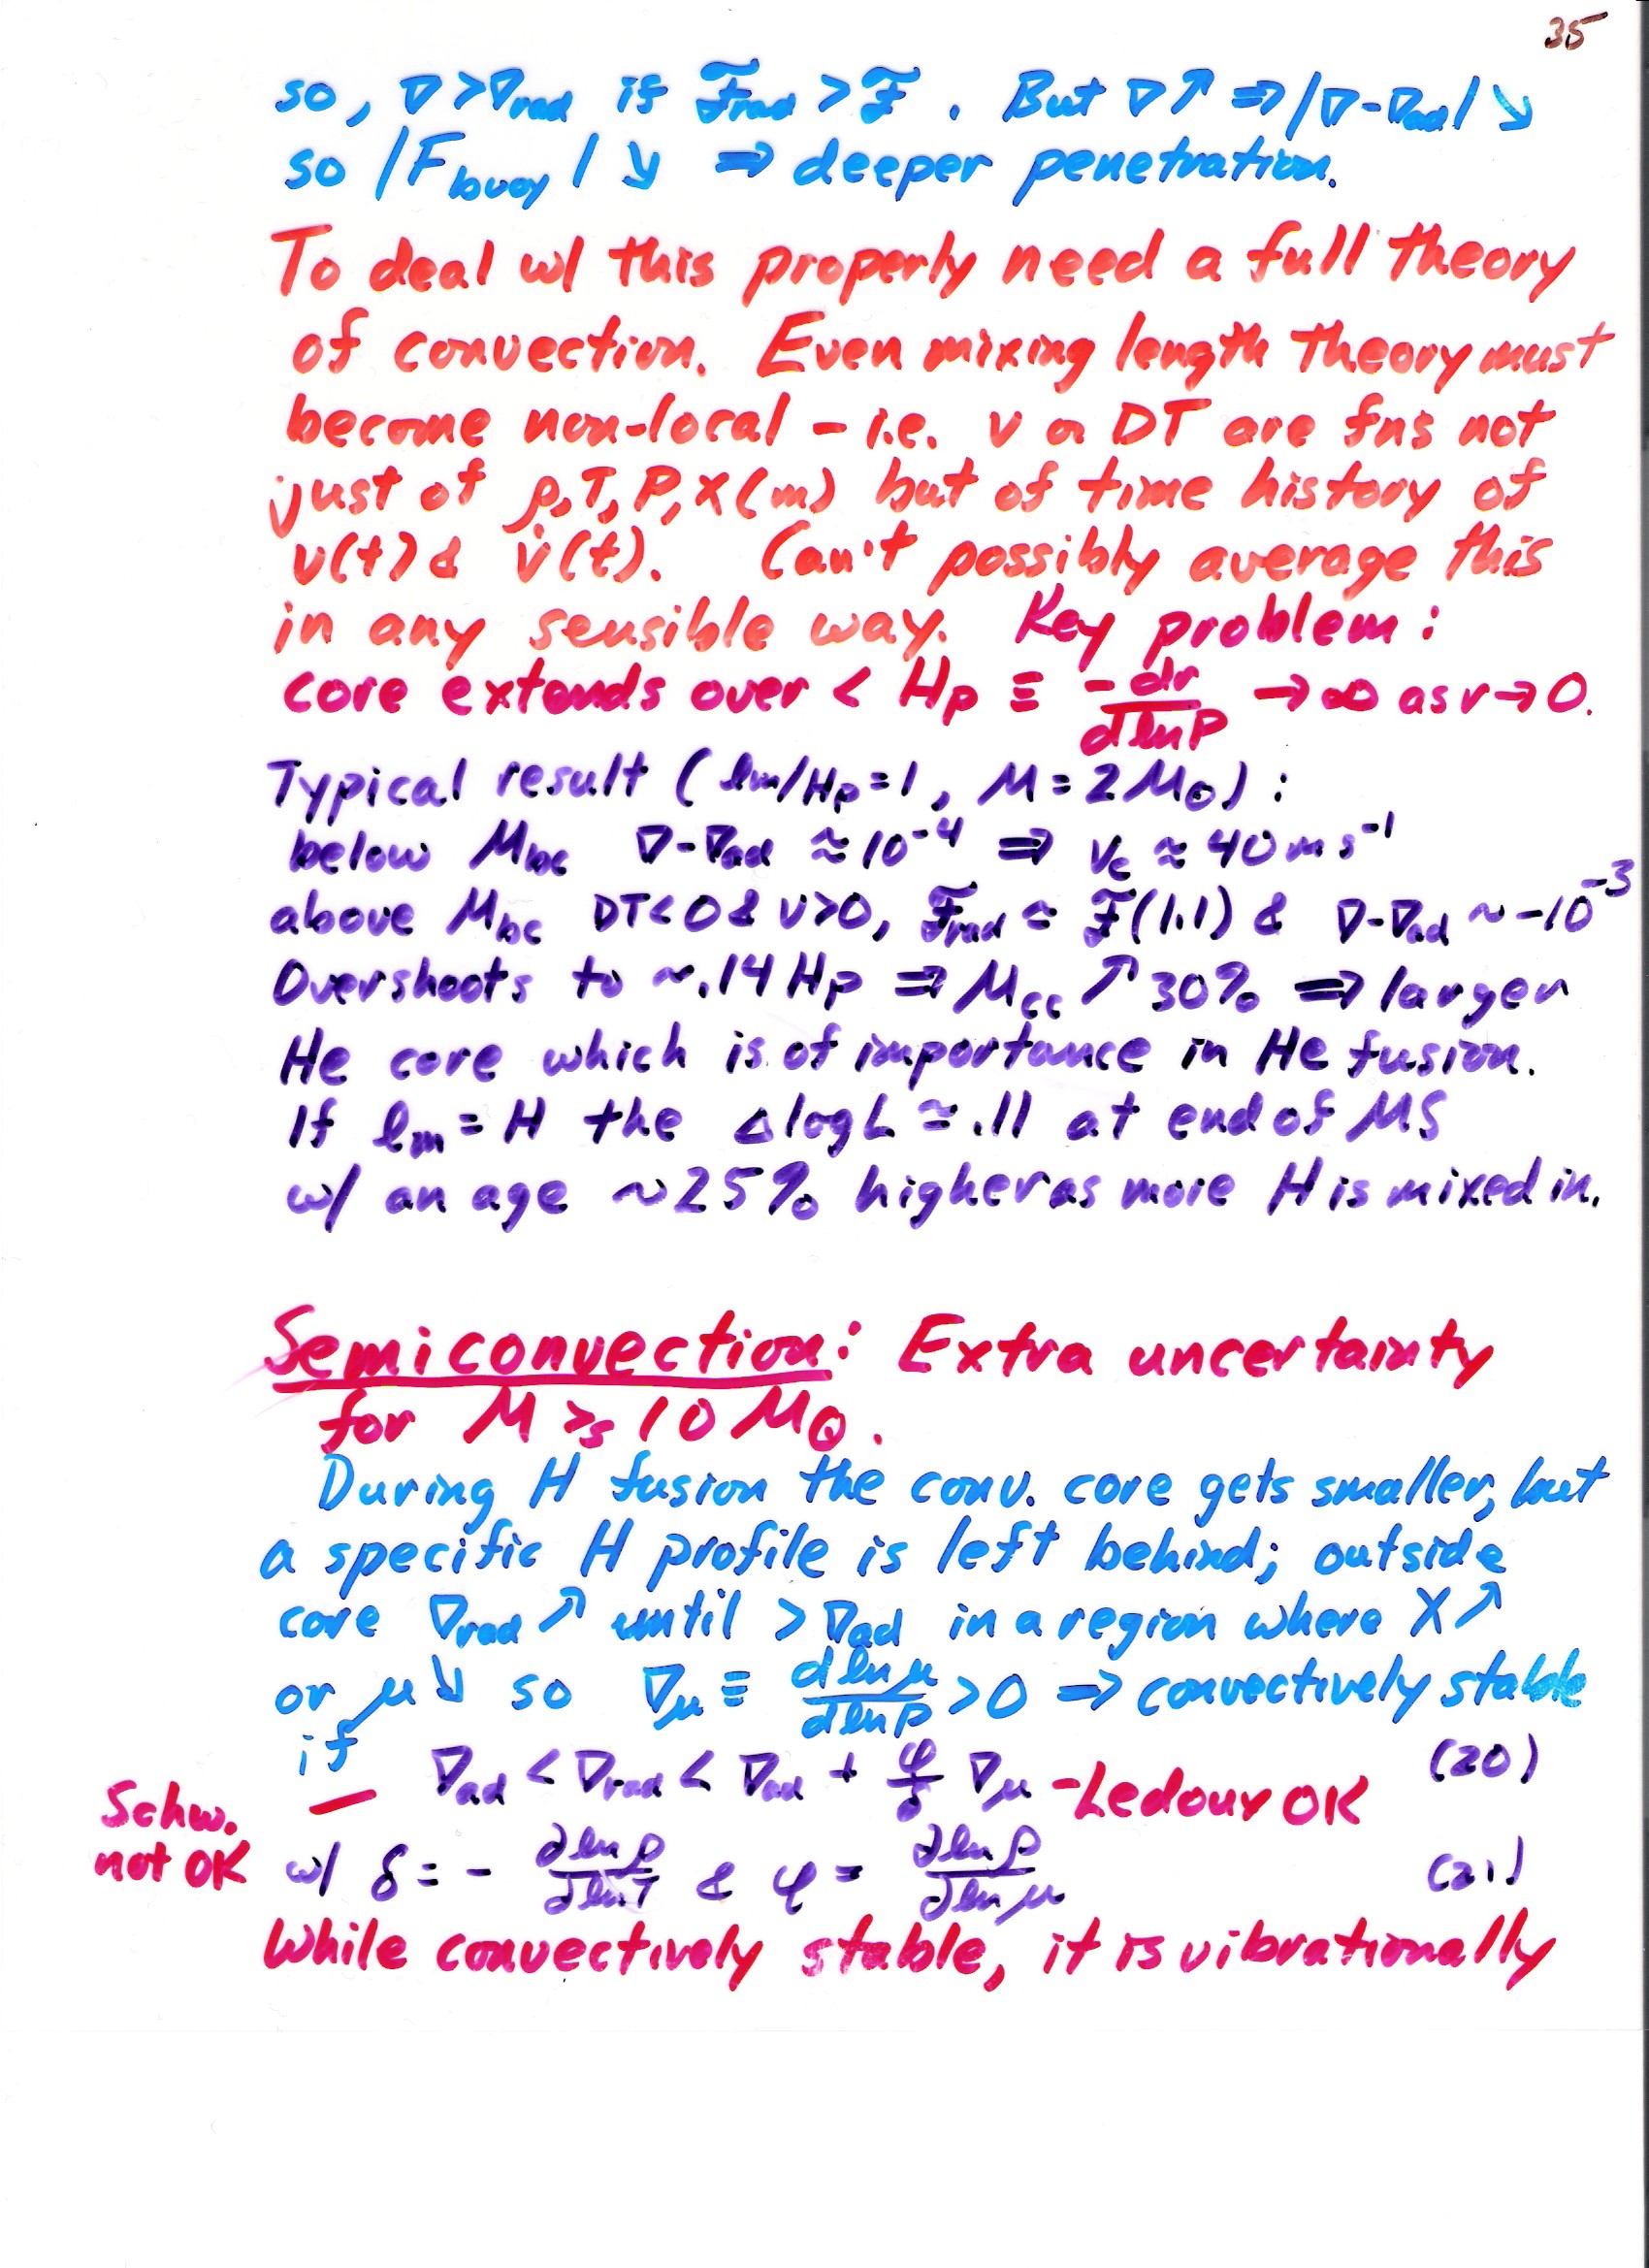 35
so, ∇>∇rad if ℱrad >ℱ. But ∇↗ ⇒|∇-∇ad| ↘
so |Fbuoy| ↘ ⇒ deeper penetration.
To deal w/ this properly need a full theory
of convection. Even mixing length theory must
become non-local - i.e. v or DT are fns not
just of ρ,T,P,X(m) but of time history of
v(t) & v̇(t). Can't possibly average this
in any sensible way. Key problem:
core extends over < Hp ≡ -dr/dlnP → ∞ as r→0.
Typical result (lm/Hp=1, M=2M⊙):
below Mbc ∇-∇ad ≈10⁻⁴ ⇒ vc ≈ 40 m s⁻¹
above Mbc DT<0 & v>0, ℱrad ≈ ℱ(1.1) & ∇-∇ad ~ -10⁻³
Overshoots to ~.14Hp ⇒ Mcc ↗30% ⇒ larger
He core which is of importance in He fusion.
If lm = H the ΔlogL ≃ .11 at end of MS
w/ an age ~25% higher as more H is mixed in.
Semiconvection: Extra uncertainty
for M ≳ 10 M⊙.
During H fusion the conv. core gets smaller, but
a specific H profile is left behind; outside
core ∇rad ↗ until > ∇ad in a region where X↗
or μ↘ so ∇μ ≡ dlnμ/dlnP >0 ⇒ convectively stable
if
∇ad < ∇rad < ∇ad + φ/δ ∇μ -Ledoux OK (20)
Schw. —
not OK
w/ δ = - ∂lnρ/∂lnT & φ = ∂lnρ/∂lnμ (21)
While convectively stable, it is vibrationally